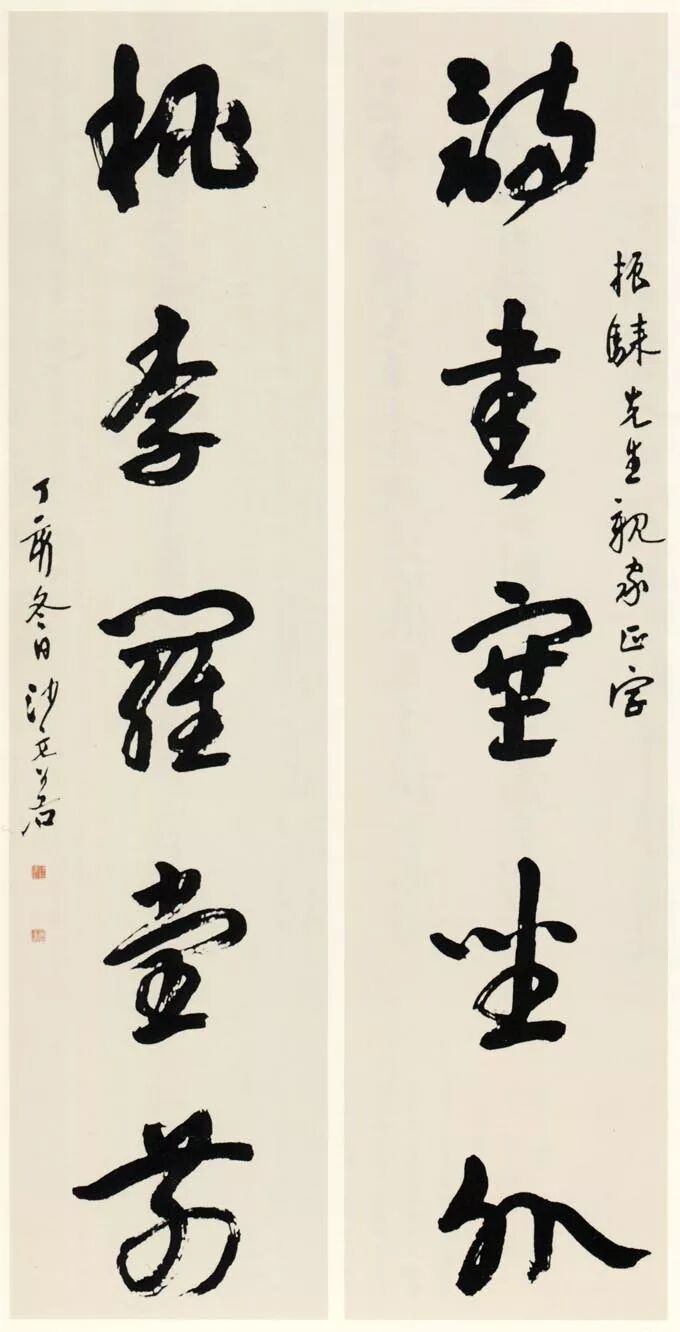 振騋先生親家正字
詩書塞坐外
桃李羅堂前
丁亥冬日沙文若